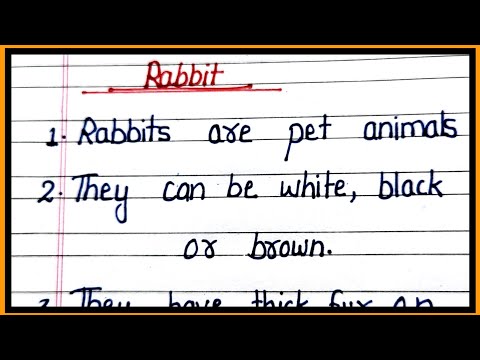 Rabbit
1. Rabbits are pet animals
2. They can be white, black
or brown.
3. They have thick fur on